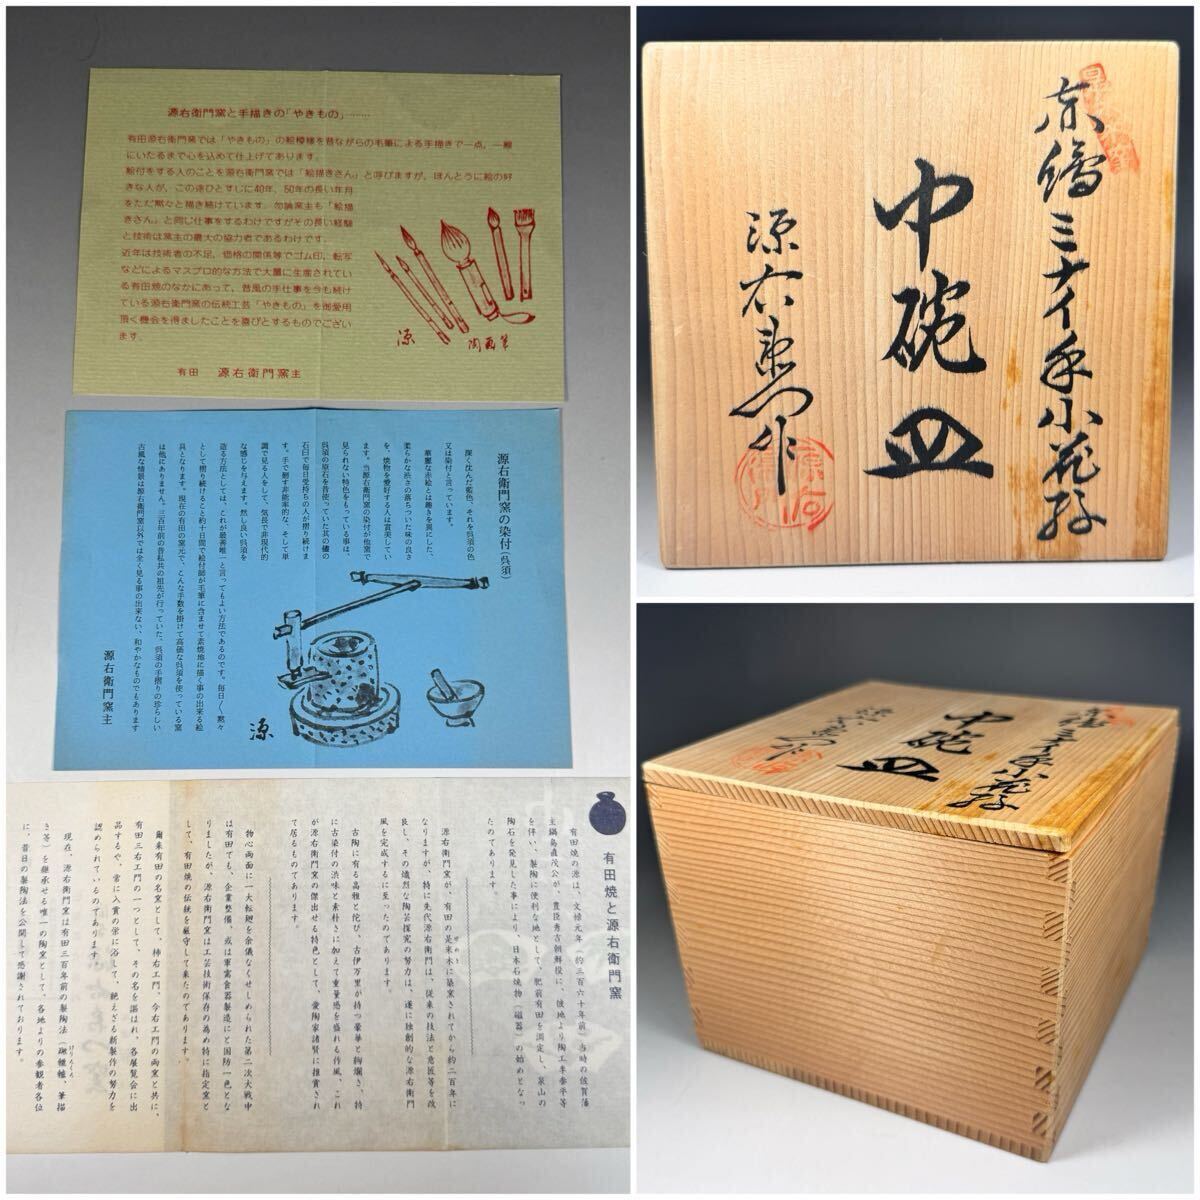 源右衛門窯と手描きの「やきもの」……
有田源右衛門窯では「やきもの」の絵模様を昔ながらの毛筆による手描きで一点、一線
にいたるまで心を込めて仕上げてあります。
絵付をする人のことを源右衛門窯では「絵描きさん」と呼びますが、ほんとうに絵の好
きな人が、この途ひとすじに40年、50年の長い年月
をただ黙々と描き続けています。勿論窯主も「絵描
きさん」と同じ仕事をするわけですがその長い経験
と技術は窯主の最大の協力者であるわけです。
近年は技術者の不足、価格の関係等でゴム印、転写
などによるマスプロ的な方法で大量に生産されてい
る有田焼のなかにあって、昔風の手仕事を今も続け
ている源右衛門窯の伝統工芸「やきもの」を御愛用
頂く機会を得ましたことを喜びとするものでござい
ます。
有田 源右衛門窯主
源 陶画筆
源右衛門窯の染付(呉須)
深く沈んだ藍色、それを呉須の色
又は染付と言っています。
華麗な赤絵とは趣きを異にした、
柔らかな渋さの落ちついた味の良さ
を、焼物を愛好する人は賞美してい
ます。当源右衛門窯の染付が他窯で
見られない特色をもっている事は、
呉須の原石を昔使っていた其の儘の
石臼で毎日受持ちの人が摺り続けま
す。手で廻す非能率的な、そして単
調で見る人をして、気長で非現代的
な感じを与えます。然し良い呉須を
造る方法としては、これが最善唯一と言ってもよい方法であるのです。毎日〱黙々
として摺り続けること約十日間で絵付師が毛筆に含ませて素焼地に描く事の出来る絵
具となります。現在の有田の窯元で、こんな手数を掛けて高価な呉須を使っている窯
は他にありません。三百年前の昔私共の祖先が行っていた、呉須の手摺りの珍らしい
古風な情景は源右衛門窯以外では全く見る事の出来ない、和やかなものでもあります
源右衛門窯主
源
有田焼と源右衛門窯
有田焼の源は、文禄元年(約三百六十年前)当時の佐賀藩
主鍋島直茂公が、豊臣秀吉朝鮮役に、彼地より陶工李参平等
を伴い、製陶に便利な地として、肥前有田を測定し、泉山の
陶石を発見した事により、日本石焼物(磁器)の始めとなっ
たのであります。
源右衛門窯が、有田の是米木に築窯されてから約二百年に
なりますが、特に先代源右衛門は、従来の技法と意匠等を改
良し、その熾烈な陶芸探究の努力は、遂に独創的な源右衛門
風を完成するに至ったのであります。
古陶に有る高雅と佗び、古伊万里が持つ豪華と絢爛さ、特
に古染付の渋味と素朴さに加えて重量感を盛れる作風、これ
が源右衛門窯の傑出せる特色として、愛陶家諸賢に推賞され
て居るものであります。
物心両面に一大転廻を余儀なくせしめられた第二次大戦中
は有田でも、企業整備、或は軍需食器製造にと国防一色とな
りましたが、源右衛門窯は工芸技術保存の為め特に指定窯と
して、有田焼の伝統を厳守して来たのであります。
爾来有田の名窯として、柿右エ門、今右エ門の両窯と共に、
有田三右エ門の一つとして、その名を謳はれ、各展覧会に出
品するや、常に入賞の栄に浴して、絶えざる新製作の努力を
認められているのであります。
現在、源右衛門窯は有田三百年前の製陶法(蹴轆轤、筆描
き等)を継承せる唯一の陶窯として、各地よりの参観者各位
に、昔日の製陶法を公開して感謝されております。
ミナイ手小花
中碗皿
源右衛門作
中碗皿